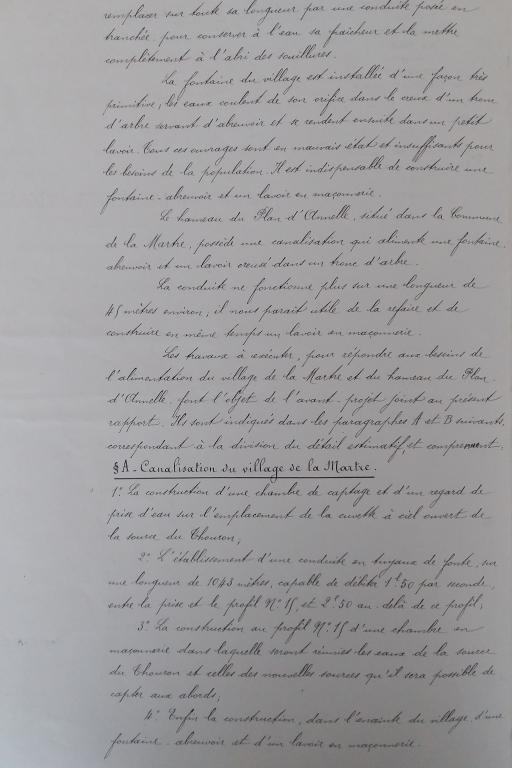 remplacer sur toute sa longueur par une conduite posée en
tranchée pour conserver à l'eau sa fraîcheur et la mettre
complètement à l'abri des souillures.
La fontaine du village est installée d'une façon très
primitive; les eaux coulent de son orifice dans le creux d'un tronc
d'arbre servant d'abreuvoir et se rendent ensuite dans un petit
lavoir. Tous ces ouvrages sont en mauvais état et insuffisants pour
les besoins de la population. Il est indispensable de construire une
fontaine-abreuvoir et un lavoir en maçonnerie.
Le hameau du Plan d'Anelle, situé dans la Commune
de la Martre, possède une canalisation qui alimente une fontaine.
abreuvoir et un lavoir creusé dans un tronc d'arbre.
La conduite ne fonctionne plus sur une longueur de
45 mètres environ; il nous parait utile de la refaire et de
construire en même temps un lavoir en maçonnerie.
Les travaux à exécuter, pour répondre aux besoins de
l'alimentation du village de la Martre et du hameau du Plan
d'Annelle, font l'objet de l'avant-projet joint au présent
rapport. Ils sont indiqués dans les paragraphes A et B suivants,
correspondant à la division du détail estimatif, et comprennent:
§ A - Canalisation du village de la Martre.
1° La construction d'une chambre de captage et d'un regard de
prise d'eau sur l'emplacement de la cuvette à ciel ouvert de
la source du Thouron;
2° L'établissement d'une conduite en tuyaux de fonte, sur
une longueur de 1043 mètres, capable de débiter 1l50 par seconde,
entre la prise et le profil N° 15, et 2l50 au-delà de ce profil;
3° La construction au profil N° 15 d'une chambre en
maçonnerie dans laquelle seront réunies les eaux de la source
du Thouron et celles des nouvelles sources qu'il sera possible de
capter aux abords;
4° Enfin la construction, dans l'enceinte du village, d'une
fontaine-abreuvoir et d'un lavoir en maçonnerie.